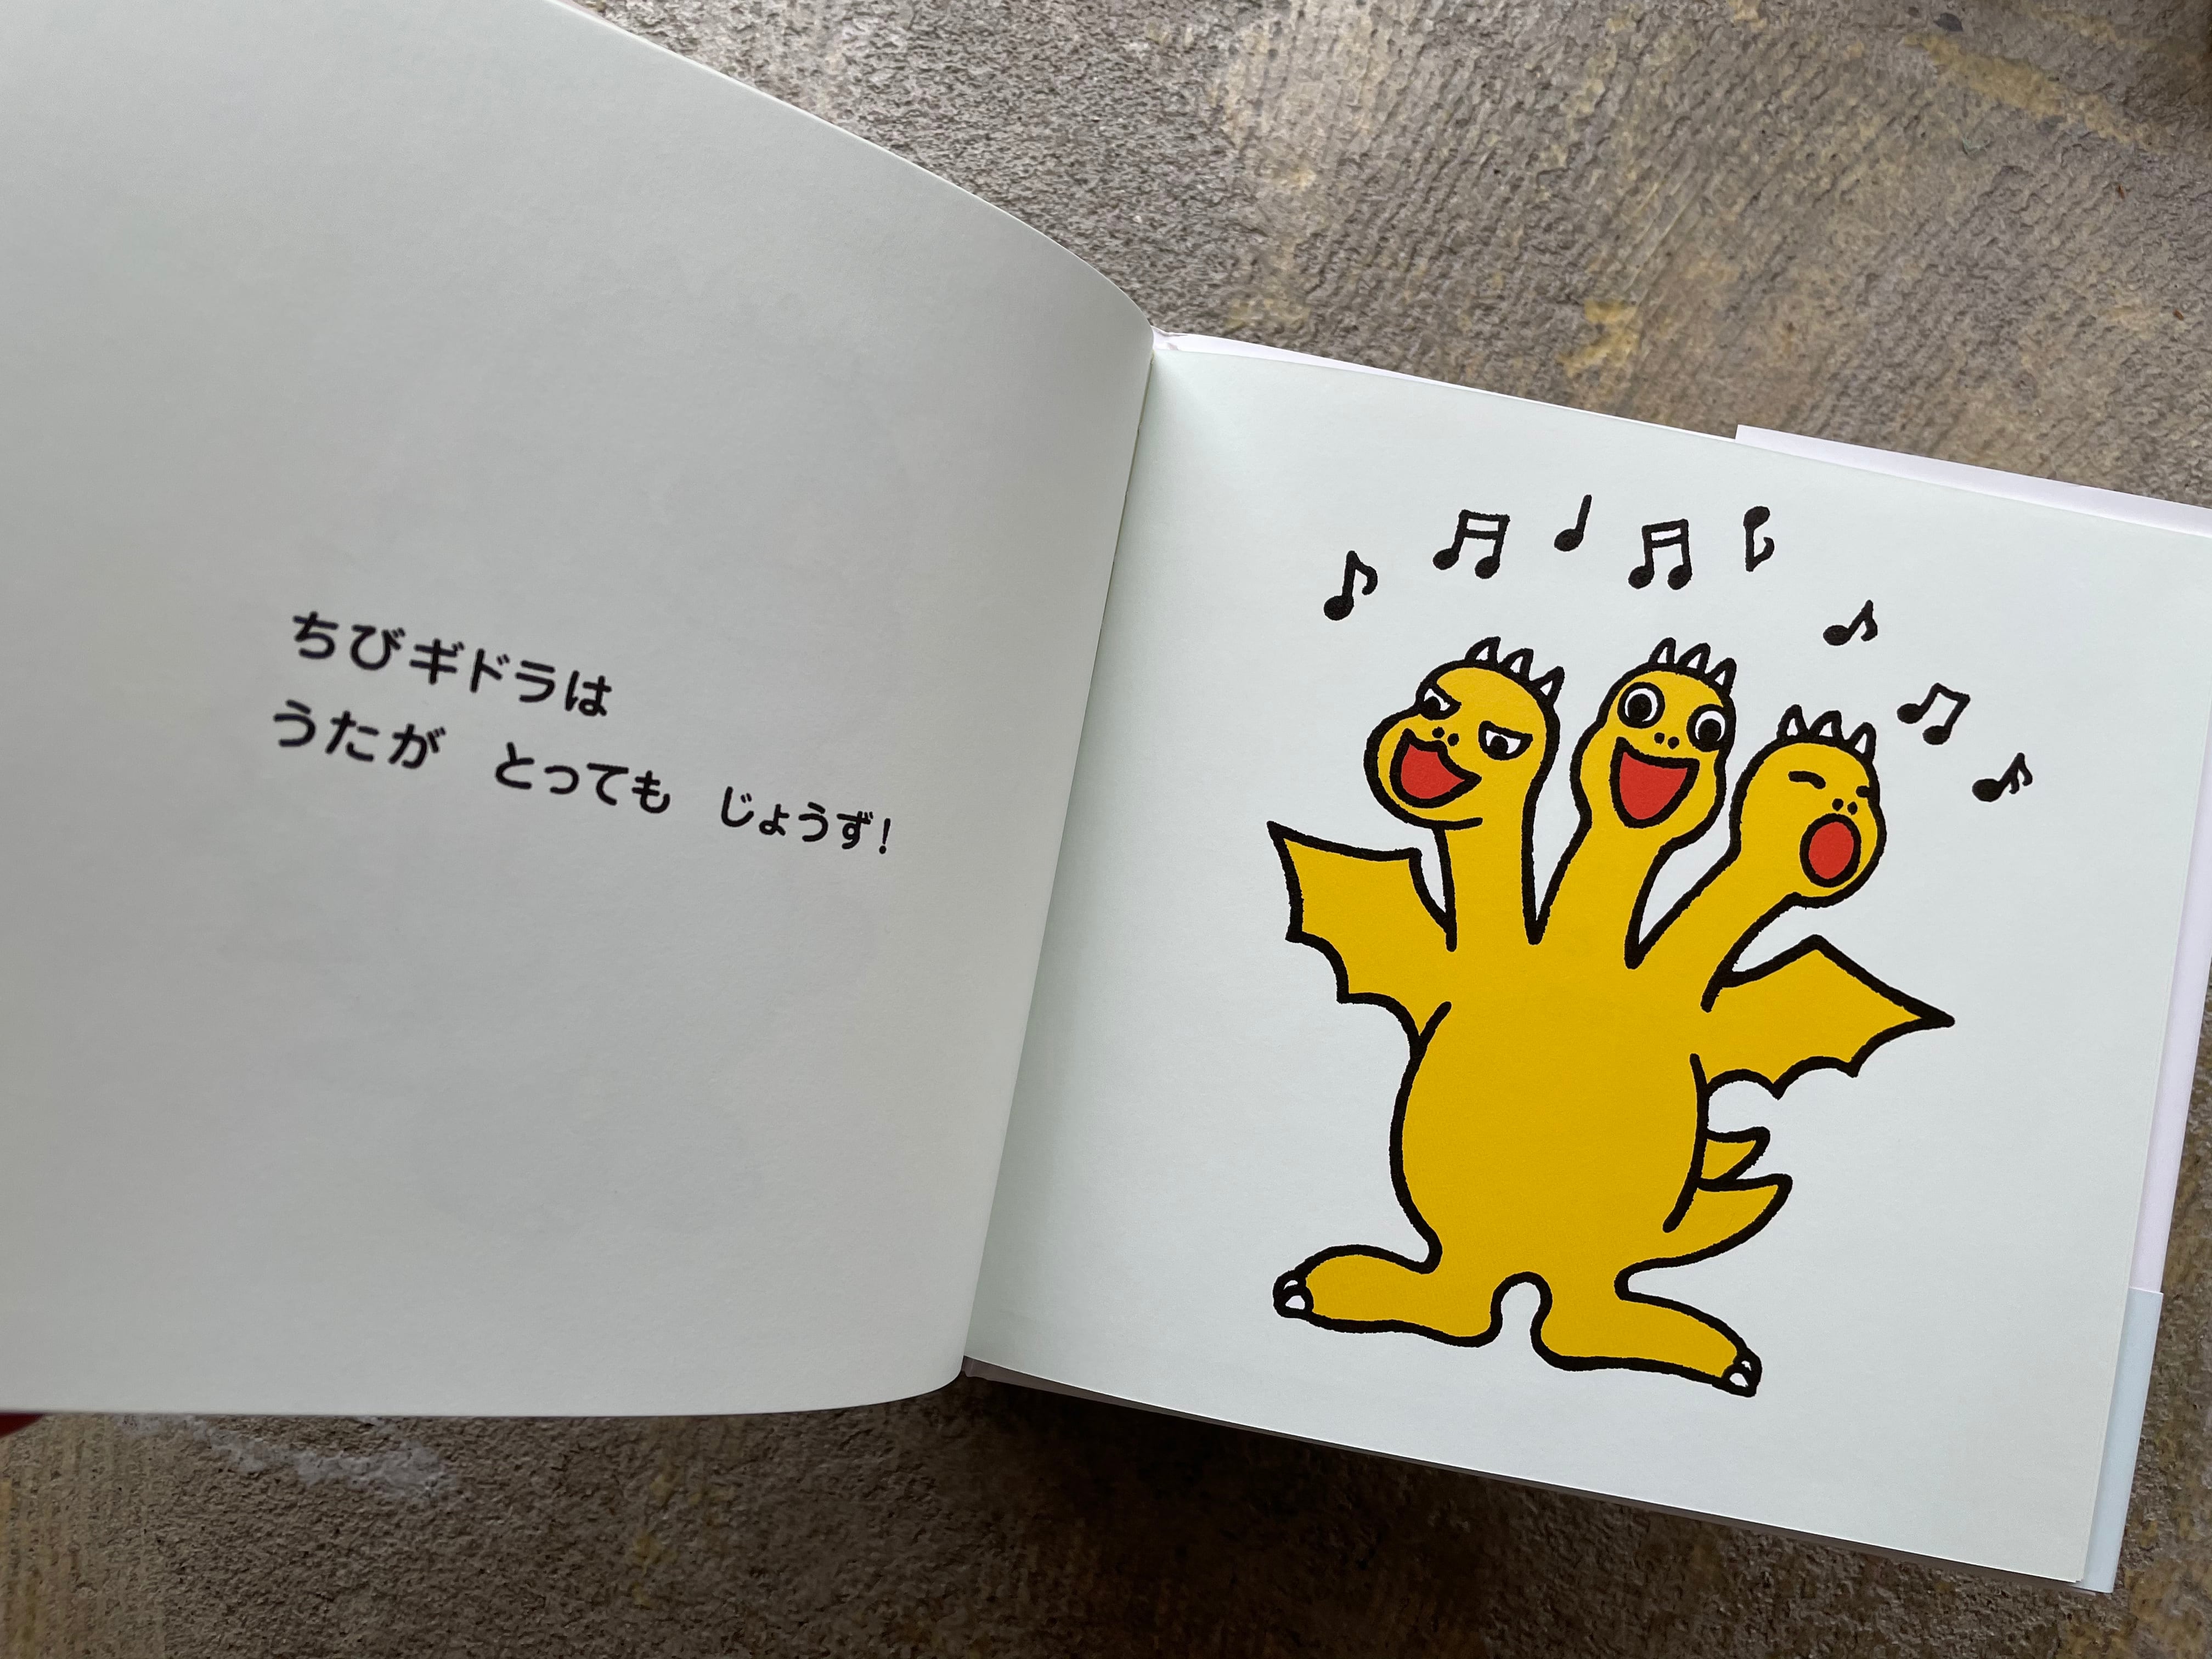 ちびギドラは
うたが　とっても　じょうず!